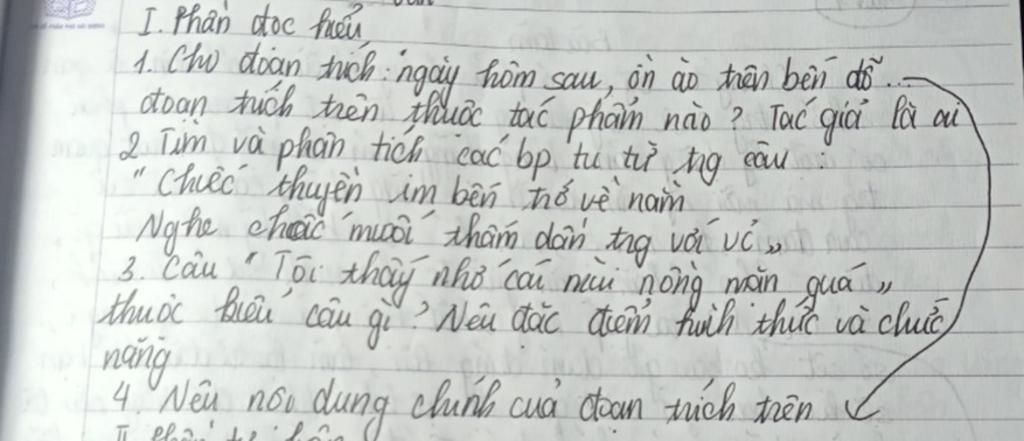 I. Phần đọc hiểu
1. Cho đoạn trích: ngày hôm sau, ồn ào trên bến đỗ...
đoạn trích trên thuộc tác phẩm nào? Tác giả là ai
2. Tìm và phân tích các bp tu từ tng câu :
" Chiếc thuyền im bến trở về nằm
Nghe chất muối thấm dần tng vỏ vỏ "
3. Câu " Tôi thấy nhớ cái mùi nồng mặn quá "
thuộc kiểu câu gì? Nêu đặc điểm hình thức và chức
năng
4. Nêu nội dung chính của đoạn trích trên
II